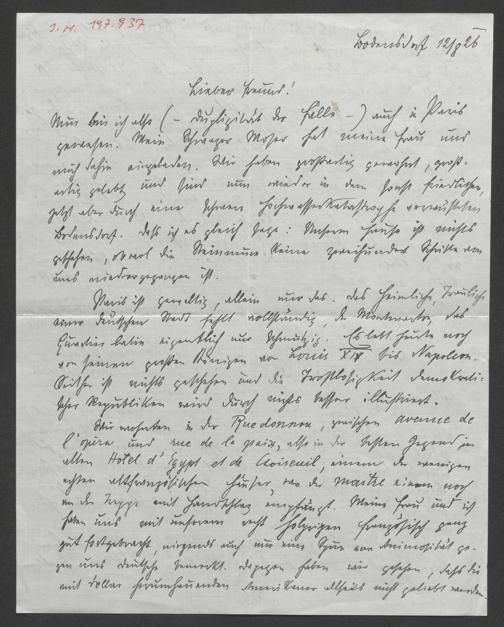 I. N. 197.937
Bodensdorf 12/9 26
Lieber Freund!
Nun bin ich also (– Duplizität der Fälle –) auch in Paris
gewesen. Mein Schwager Moser hat meine Frau und
mich dahin eingeladen. Wir haben großartig gewohnt, groß-
artig gelebt und sind nun wieder in dem sonst friedlichen,
jetzt aber durch eine schwere Hochwasserkatastrophe verwüsteten
Bodensdorf. Daß ich es gleich sage: Unserem Hause ist nichts
geschehen, obwol die Steinmure keine zweihundert Schritte von
uns niedergegangen ist.
Paris ist gewaltig, allein nur das. Das Heimliche, Trauliche
einer deutschen Stadt fehlt vollständig, der Montmartre, das
Quartier latin eigentlich nur schmutzig. Es lebt heute noch
von seinen großen Königen von Louis XIV bis Napoleon.
Seither ist nichts geschehen und die Trostlosigkeit demokrati-
scher Republiken wird durch nichts besser illustriert.
Wir wohnten in der Rue zwischen avenue de
l'opera und rue de la paix, also in der besten Gegend im
alten Hotel d'Egypt et de Choiseuil, einem der wenigen
echten altfranzösischen Häuser wo der maitre einem noch
an der Treppe mit Handschlag empfängt. Meine Frau und ich
haben uns mit unserem recht holprigen Französisch ganz
gut fortgebracht, nirgends auch nur eine Spur von Animosität ge-
gen uns Deutsche bemerkt. Dagegen haben wir gesehen, daß die
mit Dollar herumhauenden Amerikaner allseits nicht geliebt werden.